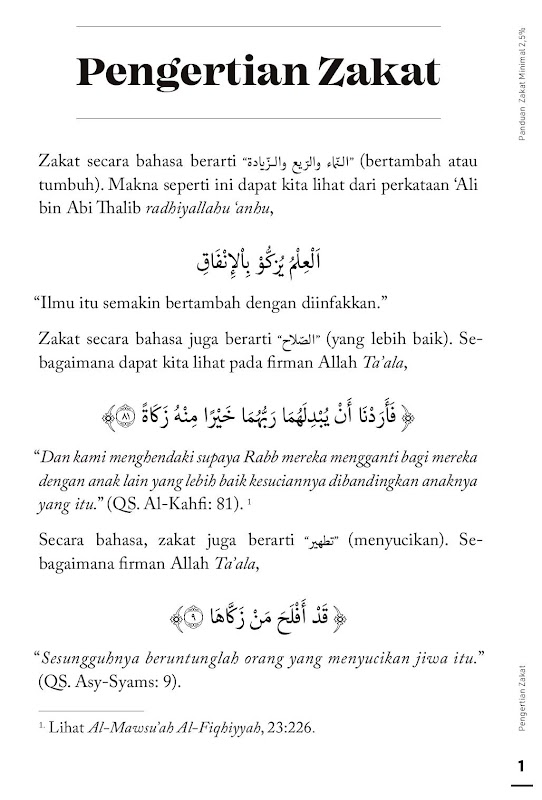 Panduan Zakat Minimal 2,5%
Pengertian Zakat
Zakat secara bahasa berarti “النّماء والرّيع والزّيادة” (bertambah atau
tumbuh). Makna seperti ini dapat kita lihat dari perkataan ‘Ali
bin Abi Thalib radhiyallahu ‘anhu,
اَلْعِلْمُ يُزَكُّوْ بِاْلإِنْفَاقِ
“Ilmu itu semakin bertambah dengan diinfakkan.”
Zakat secara bahasa juga berarti “الصّلاح” (yang lebih baik). Se-
bagaimana dapat kita lihat pada firman Allah Ta’ala,
﴿ فَأَرَدْنَا أَنْ يُبْدِلَهُمَا رَبُّهُمَا خَيْرًا مِنْهُ زَكَاةً ٨١ ﴾
“Dan kami menghendaki supaya Rabb mereka mengganti bagi mereka
dengan anak lain yang lebih baik kesuciannya dibandingkan anaknya
yang itu.” (QS. Al-Kahfi: 81). 1
Secara bahasa, zakat juga berarti “تطهير” (menyucikan). Se-
bagaimana firman Allah Ta’ala,
﴿ قَدْ أَفْلَحَ مَنْ زَكَّاهَا ٩ ﴾
“Sesungguhnya beruntunglah orang yang menyucikan jiwa itu.”
(QS. Asy-Syams: 9).
1. Lihat Al-Mawsu’ah Al-Fiqhiyyah, 23:226.
Pengertian Zakat
1